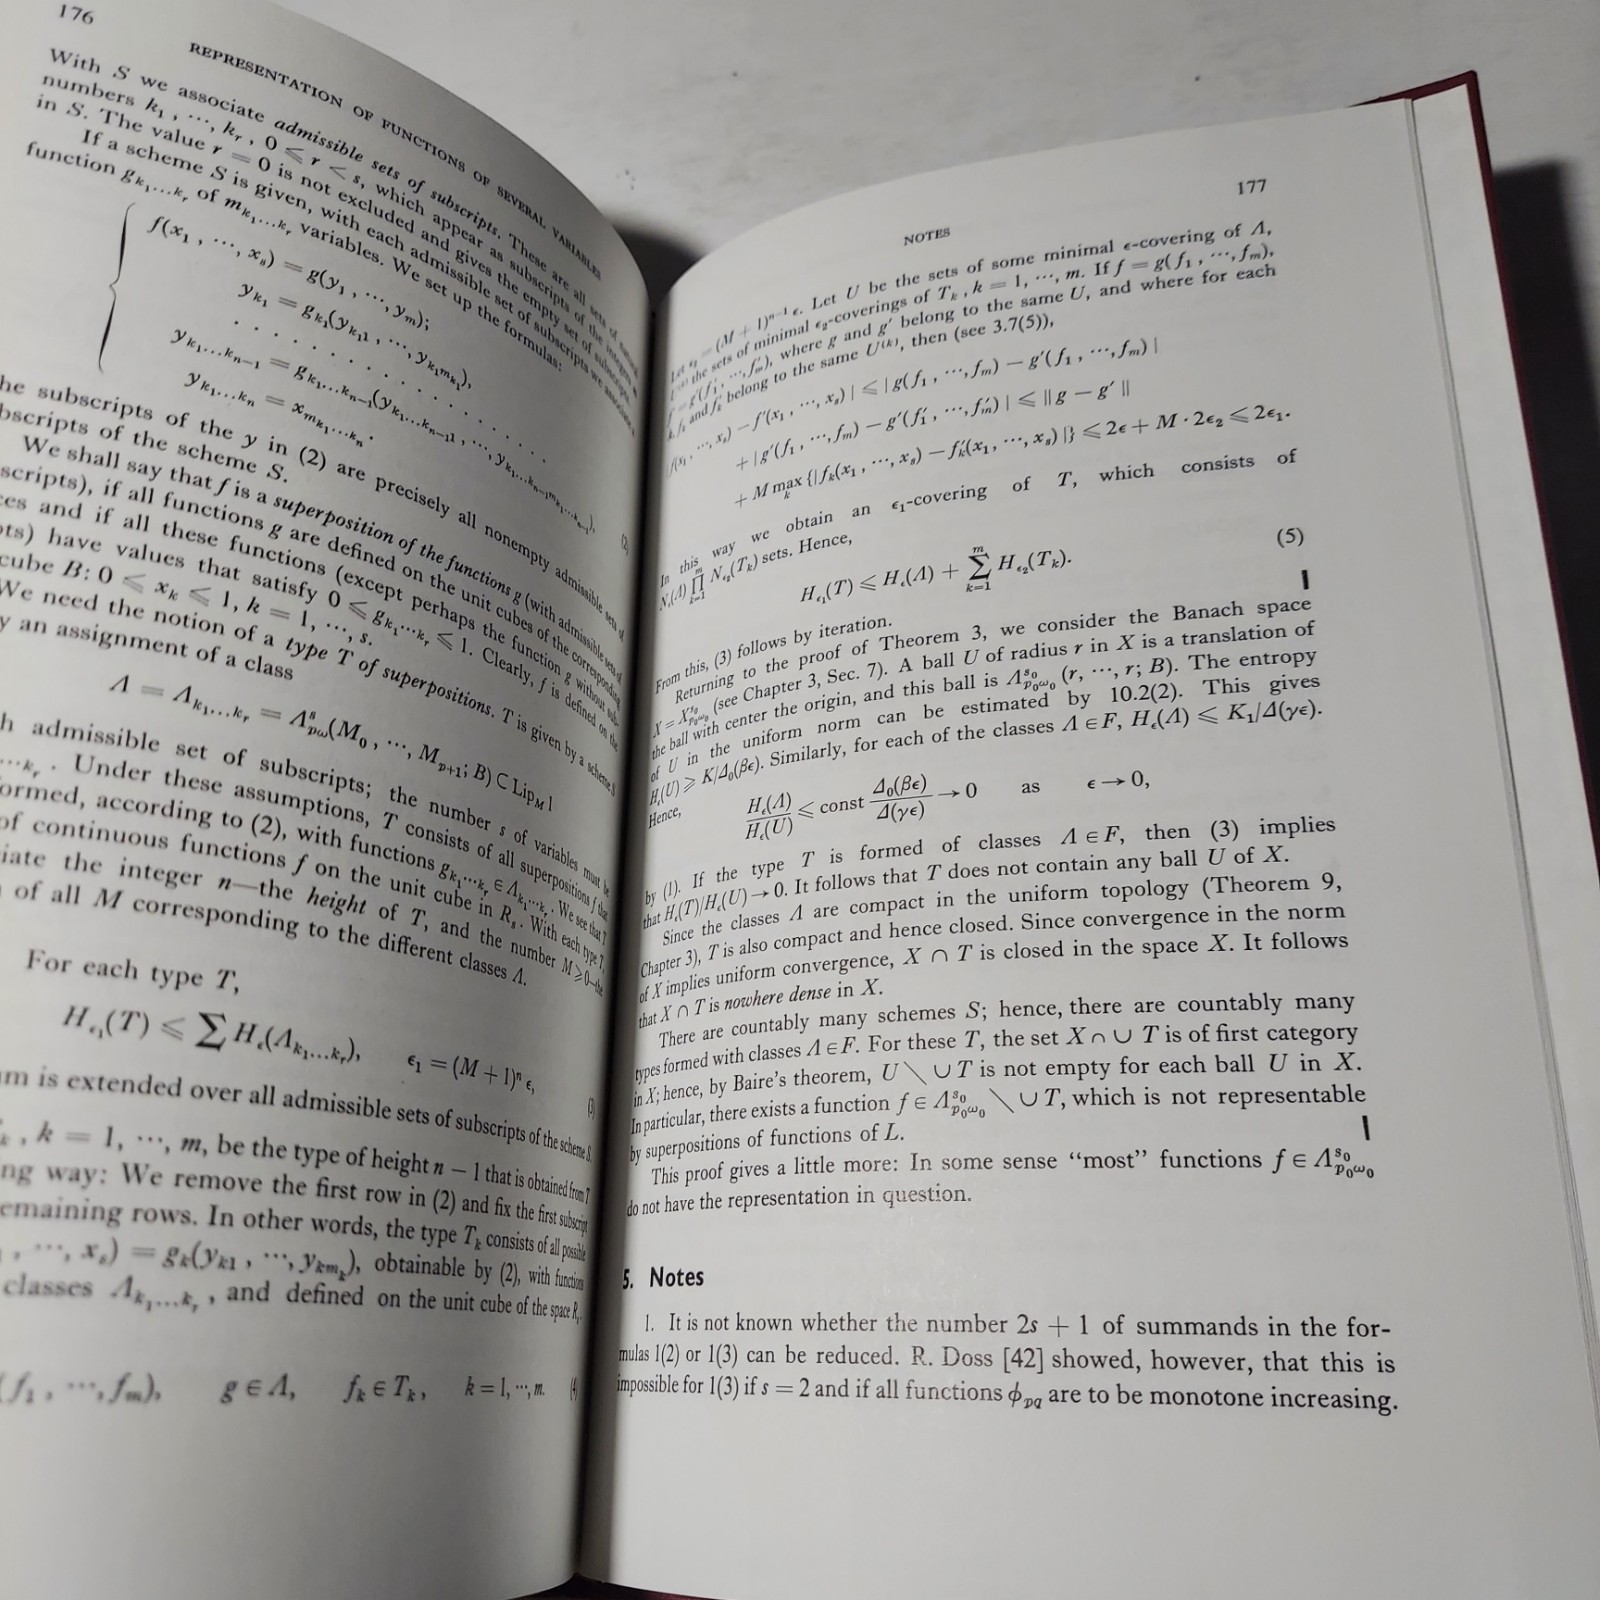 176
REPRESENTATION OF FUNCTIONS OF SEVERAL VARIABLES
With S we associate admissible sets of subscripts. These are all sets of natural
numbers k₁, ⋯, kᵣ, 0 ⩽ r < s, which appear as subscripts of the integers
in S. The value r = 0 is not excluded and gives the empty set of subscripts.
If a scheme S is given, with each admissible set of subscripts we associate a
function g_{k₁⋯kᵣ} of m_{k₁⋯kᵣ} variables. We set up the formulas:
f(x₁, ⋯, xₛ) = g(y₁, ⋯, yₘ);
y_{k₁} = g_{k₁}(y_{k₁1}, ⋯, y_{k₁m_{k₁}}),
. . . . . . . . . . . . .
y_{k₁⋯kₙ₋₁} = g_{k₁⋯kₙ₋₁}(y_{k₁⋯kₙ₋₁1}, ⋯, y_{k₁⋯kₙ₋₁m_{k₁⋯kₙ₋₁}}),
y_{k₁⋯kₙ} = x_{m_{k₁⋯kₙ}}. (2)
he subscripts of the y in (2) are precisely all nonempty admissible sets of
bscripts of the scheme S.
We shall say that f is a superposition of the functions g (with admissible sets of
scripts), if all functions g are defined on the unit cubes of the corresponding
ces and if all these functions (except perhaps the function g without sub-
pts) have values that satisfy 0 ⩽ g_{k₁⋯kᵣ} ⩽ 1. Clearly, f is defined on the
cube B: 0 ⩽ xₖ ⩽ 1, k = 1, ⋯, s.
We need the notion of a type T of superpositions. T is given by a scheme S
y an assignment of a class
Λ = Λ_{k₁⋯kᵣ} = Λˢ_{pω}(M₀, ⋯, M_{p+1}; B) ⊂ Lip_M 1
h admissible set of subscripts; the number s of variables must be
⋯ₖᵣ. Under these assumptions, T consists of all superpositions f that
ormed, according to (2), with functions g_{k₁⋯kᵣ} ∈ Λ_{k₁⋯kᵣ}. We see that T
of continuous functions f on the unit cube in Rₛ. With each type T,
iate the integer n—the height of T, and the number M ⩾ 0—the
of all M corresponding to the different classes Λ.
For each type T,
H_{ϵ₁}(T) ⩽ ∑ H_ϵ(Λ_{k₁⋯kᵣ}), ϵ₁ = (M + 1)ⁿ ϵ, (3)
um is extended over all admissible sets of subscripts of the scheme S.
ₖ, k = 1, ⋯, m, be the type of height n − 1 that is obtained from T
ng way: We remove the first row in (2) and fix the first subscript
emaining rows. In other words, the type Tₖ consists of all possible
, ⋯, xₛ) = gₖ(y_{k1}, ⋯, y_{kmₖ}), obtainable by (2), with functions
classes Λ_{k₁⋯kᵣ}, and defined on the unit cube of the space Rₛ.
(f₁, ⋯, fₘ), g ∈ Λ, fₖ ∈ Tₖ, k = 1, ⋯, m. (4)
NOTES
177
Let ϵ₂ = (M + 1)ⁿ⁻¹ ϵ. Let U be the sets of some minimal ϵ-covering of Λ,
U⁽ᵏ⁾ the sets of minimal ϵ₂-coverings of Tₖ, k = 1, ⋯, m. If f = g(f₁, ⋯, fₘ),
f′ = g′(f₁′, ⋯, fₘ′), where g and g′ belong to the same U, and where for each
k, fₖ and fₖ′ belong to the same U⁽ᵏ⁾, then (see 3.7(5)),
|f(x₁, ⋯, xₛ) − f′(x₁, ⋯, xₛ)| ⩽ |g(f₁, ⋯, fₘ) − g′(f₁, ⋯, fₘ)|
+ |g′(f₁, ⋯, fₘ) − g′(f₁′, ⋯, fₘ′)| ⩽ ‖g − g′‖
+ M max_k {|fₖ(x₁, ⋯, xₛ) − fₖ′(x₁, ⋯, xₛ)|} ⩽ 2ϵ + M · 2ϵ₂ ⩽ 2ϵ₁.
In this way we obtain an ϵ₁-covering of T, which consists of
N_ϵ(Λ) ∏_{k=1}^m N_{ϵ₂}(Tₖ) sets. Hence,
H_{ϵ₁}(T) ⩽ H_ϵ(Λ) + ∑_{k=1}^m H_{ϵ₂}(Tₖ). (5)
From this, (3) follows by iteration.
Returning to the proof of Theorem 3, we consider the Banach space
X = X^{s₀}_{p₀ω₀} (see Chapter 3, Sec. 7). A ball U of radius r in X is a translation of
the ball with center the origin, and this ball is Λ^{s₀}_{p₀ω₀} (r, ⋯, r; B). The entropy
of U in the uniform norm can be estimated by 10.2(2). This gives
H_ϵ(U) ⩾ K/Δ₀(βϵ). Similarly, for each of the classes Λ ∈ F, H_ϵ(Λ) ⩽ K₁/Δ(γϵ).
Hence,
H_ϵ(Λ)/H_ϵ(U) ⩽ const Δ₀(βϵ)/Δ(γϵ) → 0 as ϵ → 0,
by (1). If the type T is formed of classes Λ ∈ F, then (3) implies
that H_ϵ(T)/H_ϵ(U) → 0. It follows that T does not contain any ball U of X.
Since the classes Λ are compact in the uniform topology (Theorem 9,
Chapter 3), T is also compact and hence closed. Since convergence in the norm
of X implies uniform convergence, X ∩ T is closed in the space X. It follows
that X ∩ T is nowhere dense in X.
There are countably many schemes S; hence, there are countably many
types formed with classes Λ ∈ F. For these T, the set X ∩ ∪ T is of first category
in X; hence, by Baire's theorem, U \ ∪ T is not empty for each ball U in X.
In particular, there exists a function f ∈ Λ^{s₀}_{p₀ω₀} \ ∪ T, which is not representable
by superpositions of functions of L.
This proof gives a little more: In some sense “most” functions f ∈ Λ^{s₀}_{p₀ω₀}
do not have the representation in question.
5. Notes
1. It is not known whether the number 2s + 1 of summands in the for-
mulas 1(2) or 1(3) can be reduced. R. Doss [42] showed, however, that this is
impossible for 1(3) if s = 2 and if all functions ϕ_{pq} are to be monotone increasing.